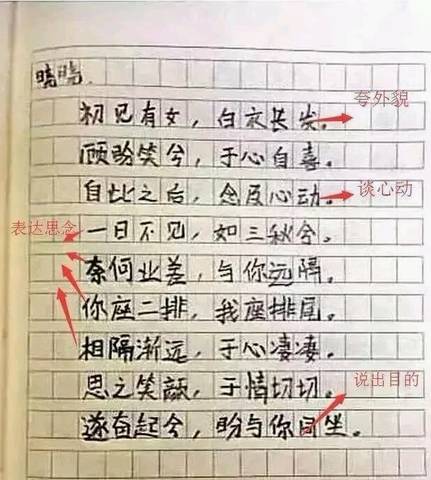 晓晓.
初见有女，白衣长发。
夸外貌
顾盼笑兮，于心自喜。
自此之后，念及心动。
谈心动
表达思念
一日不见，如三秋兮。
奈何业差，与你远隔。
你座二排，我座排尾。
相隔渐远，于心凄凄。
思之笑颜，于情切切。
说出目的
遂奋起兮，盼与你同坐。